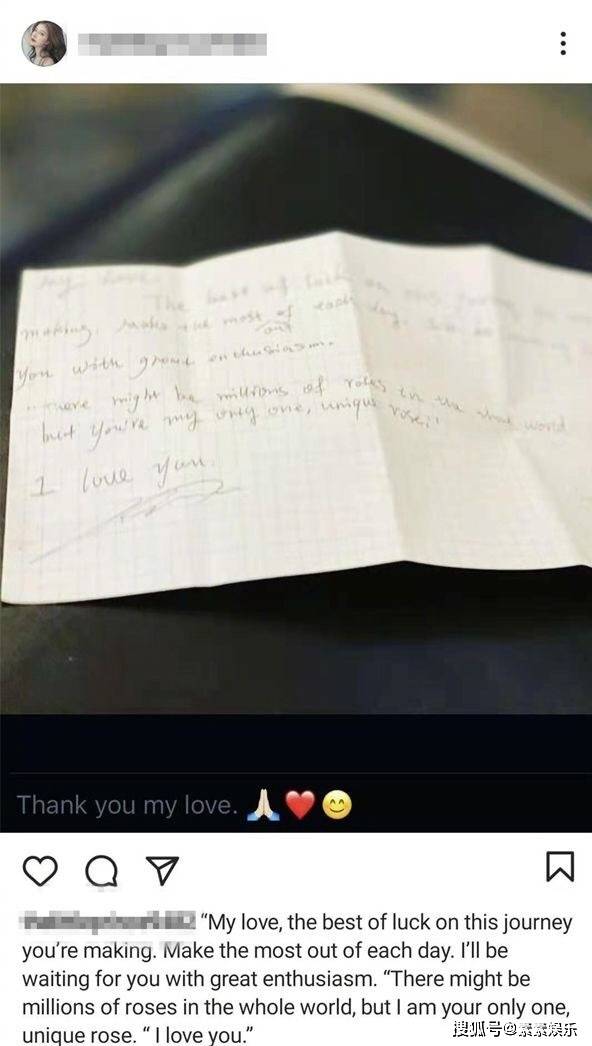 my love
The best of luck on this journey
making. Make the most of each day.
out
you with great enthusiasm.
There might be millions of roses in the whole world
but you're my only one, unique rose."
I love you.
Thank you my love. 🙏🏻❤️😊
“My love, the best of luck on this journey
you’re making. Make the most out of each day. I’ll be
waiting for you with great enthusiasm. “There might be
millions of roses in the whole world, but I am your only one,
unique rose. “ I love you.”
搜狐号@素素娱乐